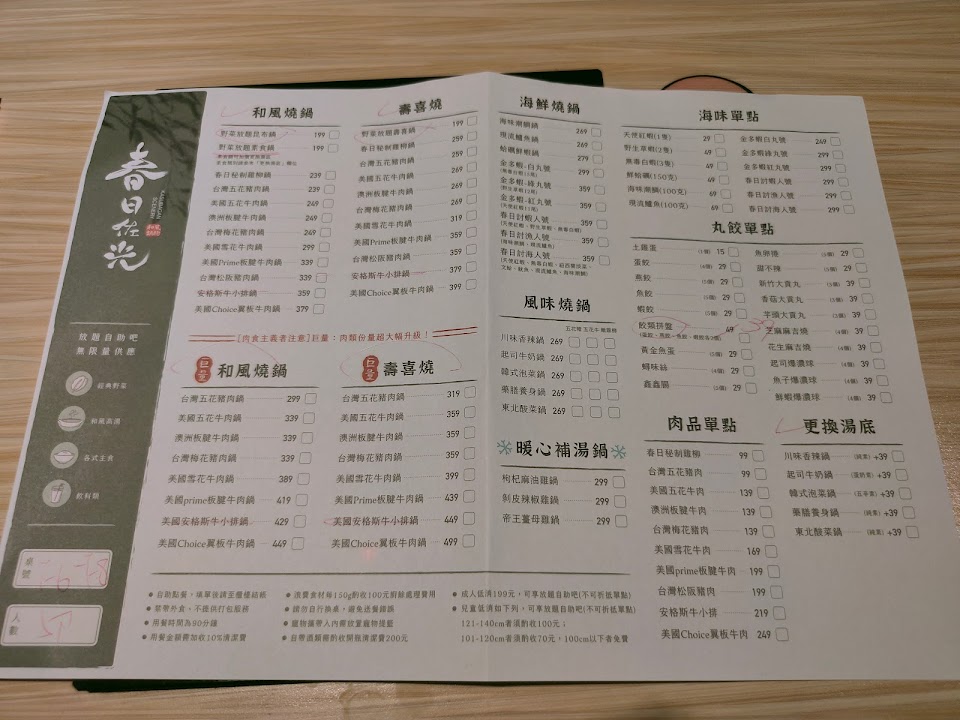 春日在光
KAWAGGAI SCENERY
放題自助吧
無限量供應
經典野菜
和風高湯
各式主食
飲料類
桌號
人數
和風燒鍋
野菜放題昆布鍋 199
野菜放題素食鍋 199
春日秘制雞柳鍋 239
台灣五花豬肉鍋 239
美國五花牛肉鍋 249
澳洲板腱牛肉鍋 249
台灣梅花豬鍋 249
美國雪花牛肉鍋 299
美國Prime板腱牛肉鍋 339
台灣松阪豬肉鍋 339
安格斯牛小排鍋 359
美國Choice翼板牛肉鍋 379
壽喜燒
野菜放題壽喜鍋 199
春日秘制雞柳鍋 259
台灣五花豬肉鍋 259
美國五花牛肉鍋 269
澳洲板腱牛肉鍋 269
台灣梅花豬鍋 269
美國雪花牛肉鍋 319
美國Prime板腱牛肉鍋 359
台灣松阪豬肉鍋 359
安格斯牛小排鍋 379
美國Choice翼板牛肉鍋 399
[肉食主義者注意]巨量：肉類份量超大幅升級！
巨量 和風燒鍋
台灣五花豬肉鍋 299
美國五花牛肉鍋 339
澳洲板腱牛肉鍋 339
台灣梅花豬肉鍋 339
美國雪花牛肉鍋 389
美國prime板腱牛肉鍋 419
美國安格斯牛小排鍋 429
美國Choice翼板牛肉鍋 449
巨量 壽喜燒
台灣五花豬肉鍋 319
美國五花牛肉鍋 359
澳洲板腱牛肉鍋 359
台灣梅花豬肉鍋 359
美國雪花牛肉鍋 399
美國Prime板腱牛肉鍋 439
美國安格斯牛小排鍋 449
美國Choice翼板牛肉鍋 499
海鮮燒鍋
海味潮鯛鍋 269
現流鱸魚鍋 269
蛤蠣鮮蝦鍋 279
金多蝦-白丸號 299
金多蝦-綠丸號 359
金多蝦-紅丸號 359
春日討蝦人號 359
春日討漁人號 359
春日討海人號 359
風味燒鍋
川味香辣鍋 269
起司牛奶鍋 269
韓式泡菜鍋 269
藥膳養身鍋 269
東北酸菜鍋 269
暖心補湯鍋
枸杞麻油雞鍋 299
剝皮辣椒雞鍋 299
帝王薑母雞鍋 299
海味單點
天使紅蝦(1隻) 29
野生草蝦(2隻) 49
無毒白蝦(3隻) 49
鮮蛤蠣(150克) 49
海味潮鯛(100克) 69
現流鱸魚(100克) 69
金多蝦白丸號 249
金多蝦綠丸號 299
金多蝦紅丸號 299
春日討蝦人號 299
春日討漁人號 299
春日討海人號 299
丸餃單點
土雞蛋 (1個) 15
蛋餃 (4個) 29
燕餃 (5個) 29
魚餃 (5個) 29
蝦餃 (5個) 29
餃類拼盤 49
黃金魚蛋 (5個) 29
蟳味絲 (5個) 29
鑫鑫腸 (5個) 29
魚卵捲 29
甜不辣 29
新竹大貢丸 39
香菇大貢丸 39
芋頭大貢丸 39
芝麻麻吉燒 39
花生麻吉燒 39
起司爆濃球 39
魚子爆濃球 39
鮮蝦爆濃球 39
肉品單點
春日秘制雞柳 99
台灣五花豬肉 99
美國五花牛肉 139
澳洲板腱牛肉 139
台灣梅花豬肉 139
美國雪花牛肉 169
美國prime板腱牛肉 199
台灣松阪豬肉 199
安格斯牛小排 219
美國Choice翼板牛肉 249
更換湯底
川味香辣鍋 (純素) +39
起司牛奶鍋 +39
韓式泡菜鍋 (五辛素) +39
藥膳養身鍋 (純素) +39
東北酸菜鍋 (純素) +39
● 自助點餐，填單後請至櫃檯結帳
● 禁帶外食、不提供打包服務
● 用餐時間為90分鐘
● 用餐金額需加收10%清潔費
● 浪費食材每150g酌收100元廚餘處理費用
● 請勿自行換桌，避免送餐錯誤
● 寵物攜帶入內需放置寵物提籃
● 自帶酒類需酌收開瓶清潔費200元
● 成人低消199元，可享放題自助吧(不可折抵單點)
● 兒童低消如下列，可享放題自助吧(不可折抵單點)
121-140cm者須酌收100元；
101-120cm者須酌收70元，100cm以下者免費